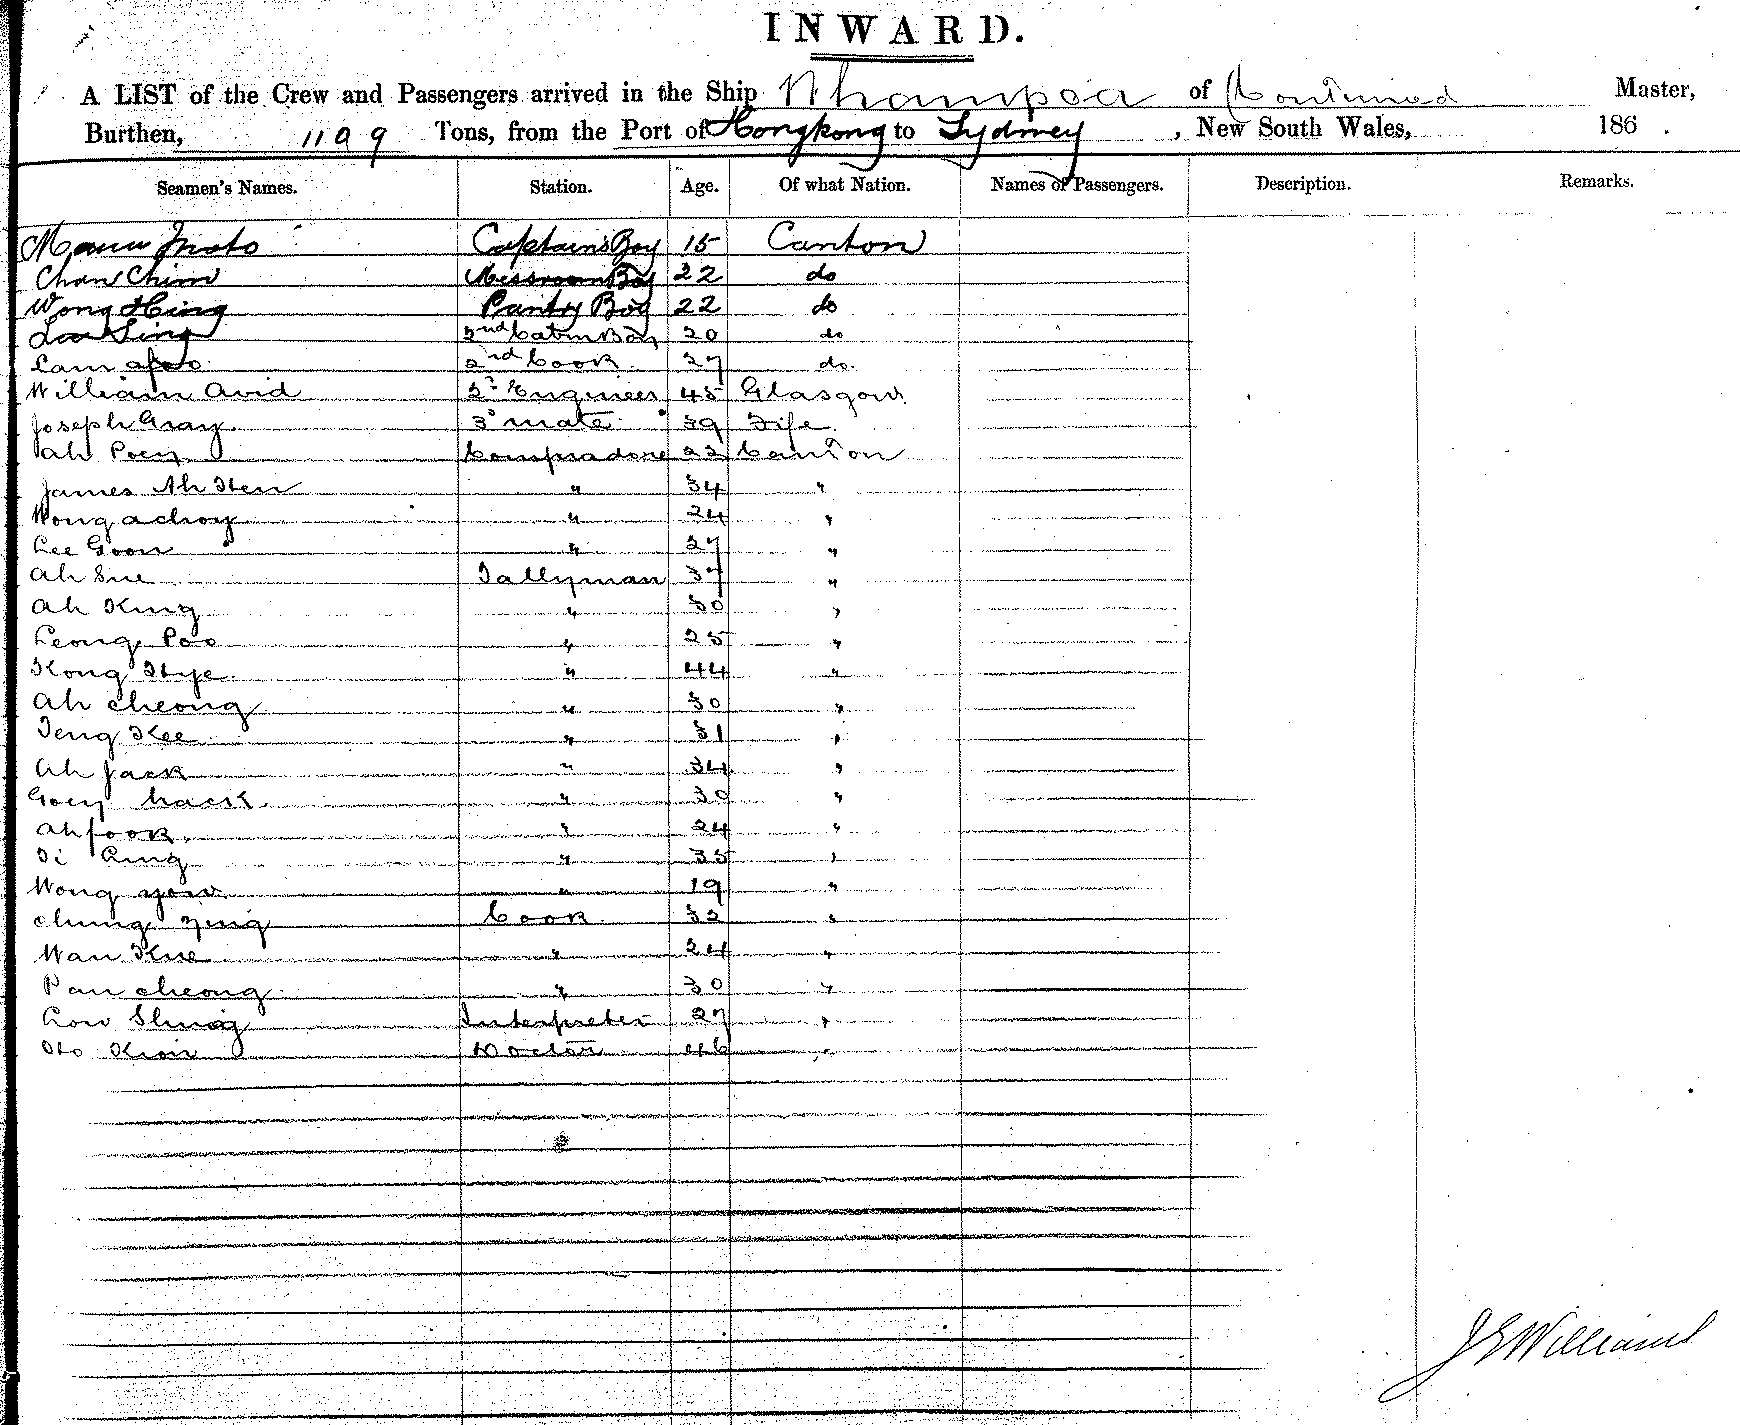 INWARD.
A LIST of the Crew and Passengers arrived in the Ship Whampoa of Continued Master,
Burthen, 1109 Tons, from the Port of Hongkong to Sydney, New South Wales, 186 .
Seamen's Names. Station. Age. Of what Nation. Names of Passengers. Description. Remarks.
Captains Boy 15 Canton
Chan Chim Messroom Boy 22 do
Wong Hing Pantry Boy 22 do
Loo Sing 2nd Cabin Boy 20 do
Lam afoo 2nd Cook 27 do.
William Avid 2d Engineer 45 Glasgow
Joseph Gray 3d mate 39 Fife
Ah Poey Compradore 22 Canton
James Ah Hen " 34 "
Wong achoy " 24 "
Lee Goon " 27 "
Ah Sue Tallyman 37 "
Ah King " 30 "
Leong Poo " 25 "
Kong Hye " 44 "
Ah cheong " 30 "
Teng Kee " 31 "
Ah Jack " 34 "
Goey hack " 30 "
Ah fook " 24 "
" 35 "
Wong yow " 19 "
chung ying Cook 32 "
Wan Kue " 24 "
Pan cheong " 30 "
Interpreter 27 "
Doctor 46 "
J E Williams